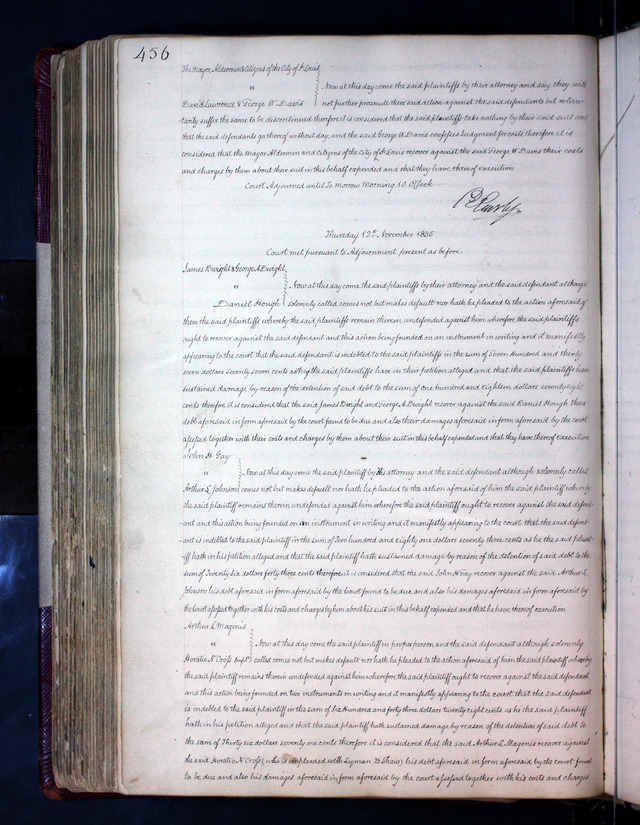 456
The Mayor, Aldermen & Citizens of the City of St Louis
vs Now at this day come the said plaintiffs by their attorney and say they will
David Lawrence & George W Davis not further prosecute their said action against the said defendants but volun-
tarily suffer the same to be discontinued therefore it is considered that the said plaintiffs take nothing by their said suit and
that the said defendants go thereof without day, and the said George W Davis confesses Judgment for costs therefore it is
considered that the Mayor Aldermen and Citizens of the City of St Louis recover against the said George W Davis their costs
and charges by them about their suit in this behalf expended and that they have thereof execution
Court Adjourned until To morrow Morning 10 OClock
Thursday 12th November 1835
Court met pursuant to Adjournment present as before
James Dwight & George A Dwight
vs Now at this day come the said plaintiffs by their attorney and the said defendant although
Daniel Hough solemnly called comes not but makes default nor hath he pleaded to the action aforesaid of
them the said plaintiffs whereby the said plaintiffs remain therein undefended against him wherefore the said plaintiffs
ought to recover against the said defendant and this action being founded on an instrument in writing and it manifestly
appearing to the court that the said defendant is indebted to the said plaintiffs in the sum of Seven Hundred and thirty
seven dollars seventy seven cents as they the said plaintiffs have in their petition alleged and that the said plaintiffs have
sustained damage by reason of the detention of said debt to the sum of one hundred and eighteen dollars seventy eight
cents therefore it is considered that the said James Dwight and George A Dwight recover against the said Daniel Hough their
debt aforesaid in form aforesaid by the court found to be due and also their damages aforesaid in form aforesaid by the court
assessed together with their costs and charges by them about their suit in this behalf expended and that they have thereof execution
John H Gay
vs Now at this day come the said plaintiff by his attorney and the said defendant although solemnly called
Arthur L Johnson comes not but makes default nor hath he pleaded to the action aforesaid of him the said plaintiff whereby
the said plaintiff remains therein undefended against him wherefore the said plaintiff ought to recover against the said defend-
ant and this action being founded on an instrument in writing and it manifestly appearing to the court that the said defend-
ant is indebted to the said plaintiff in the sum of Two hundred and eighty one dollars seventy three cents as he the said plaint-
iff hath in his petition alleged and that the said plaintiff hath sustained damage by reason of the detention of said debt to the
sum of Twenty six dollars forty three cents therefore it is considered that the said John H Gay recover against the said Arthur L
Johnson his debt aforesaid in form aforesaid by the court found to be due and also his damages aforesaid in form aforesaid by
the court assessed together with his costs and charges by him about his suit in this behalf expended and that he have thereof execution
Arthur L Magenis
vs Now at this day come the said plaintiff in proper person and the said defendant although solemnly
Horatio N Cross called comes not but makes default nor hath he pleaded to the action aforesaid of him the said plaintiff whereby
the said plaintiff remains therein undefended against him wherefore the said plaintiff ought to recover against the said defendant
and this action being founded on two instruments in writing and it manifestly appearing to the court that the said defendant
is indebted to the said plaintiff in the sum of Six Hundred and forty three dollars twenty eight cents as he the said plaintiff
hath in his petition alleged and that the said plaintiff hath sustained damage by reason of the detention of said debt to
the sum of Thirty six dollars seventy one cents therefore it is considered that the said Arthur L Magenis recover against
the said Horatio N Cross (who is impleaded with Lyman B Shaw) his debt aforesaid in form aforesaid by the court found
to be due and also his damages aforesaid in form aforesaid by the court assessed together with his costs and charges